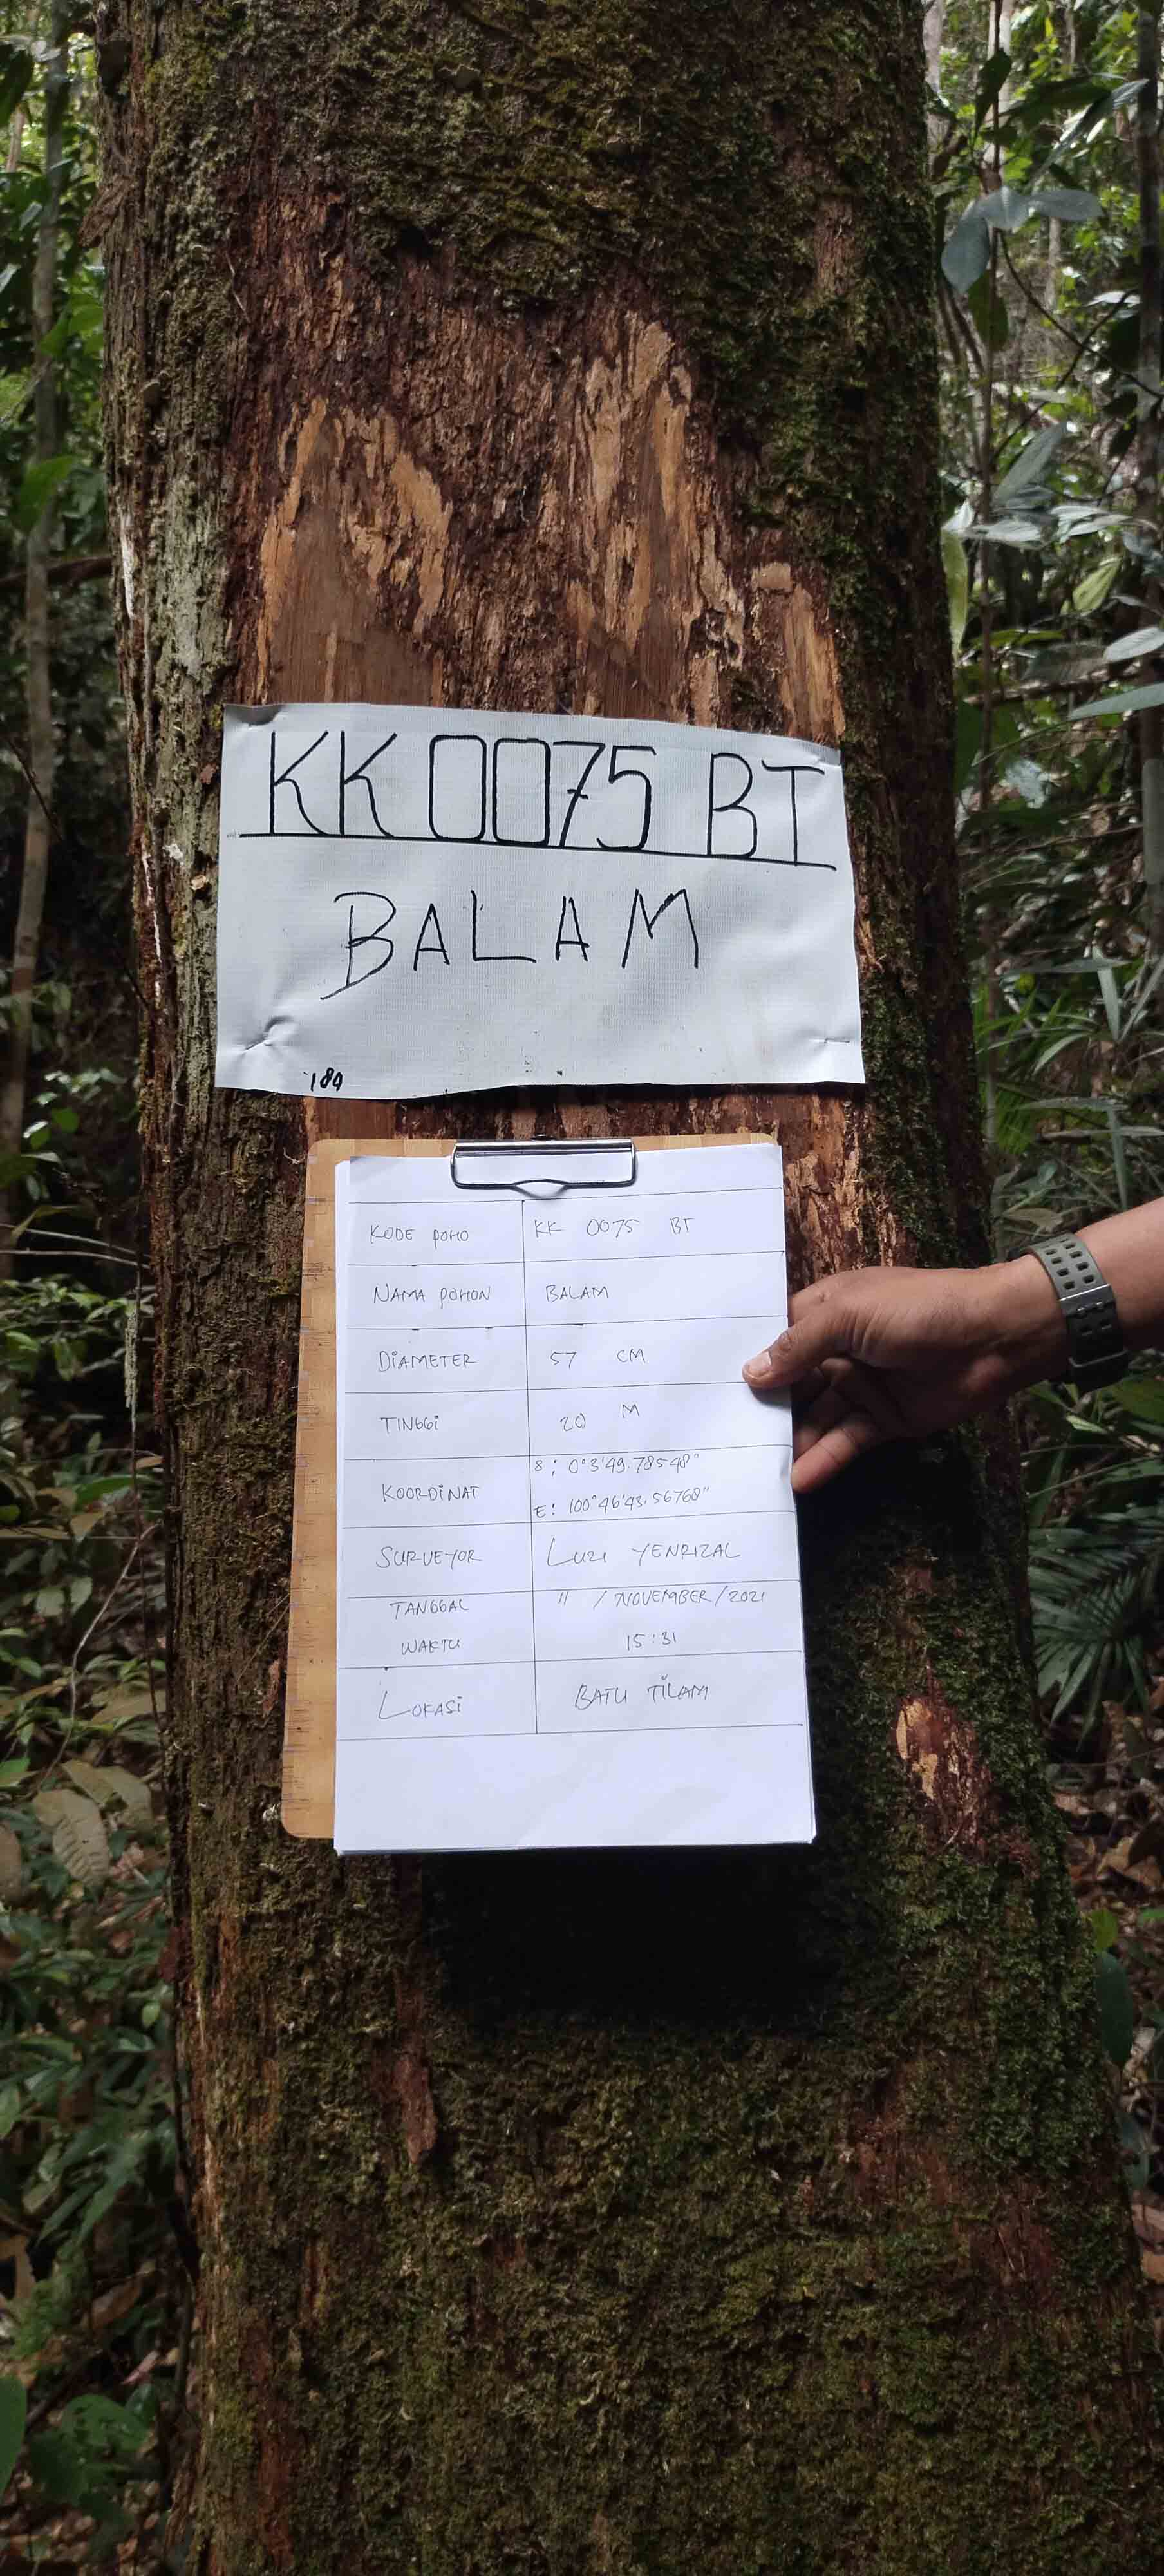 KK 0075 BT
BALAM
184
KODE POHO KK 0075 BT
NAMA POHON BALAM
DIAMETER 57 CM
TINGGI 20 M
KOORDINAT S : 0°3'49.78548"
E : 100°46'43.56768"
SURVEYOR LUZI YENRIZAL
TANGGAL 11 / NOVEMBER / 2021
WAKTU 15:31
LOKASI BATU TILAM